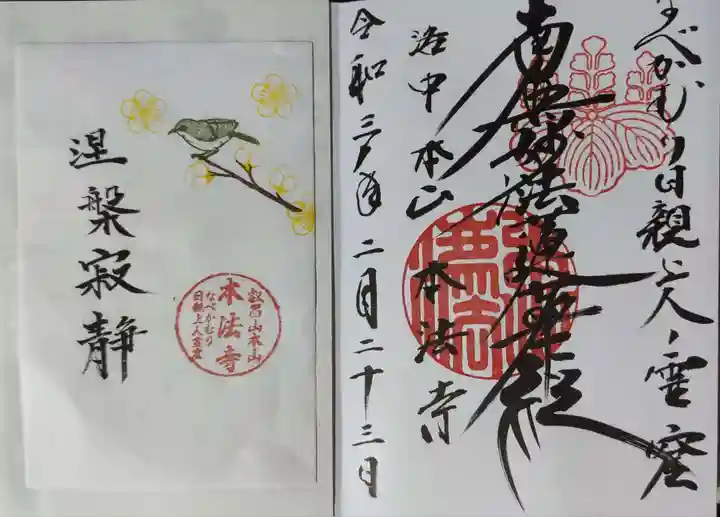 涅槃寂静
叡昌山本山
本法寺
なべかむり
日親上人霊窟
なべかむり日親上人ノ霊窟
南無妙法蓮華経
洛中 本山 本法寺
令和三年二月二十三日